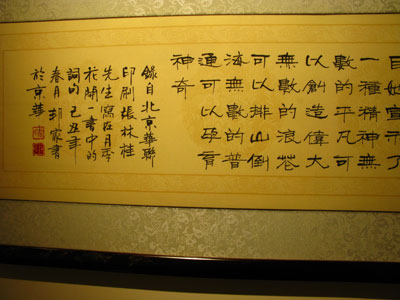 她宣示了
一種精神無
數的平凡可
以創造偉大
無數的浪花
可以排山倒
海無數的普
通可以孕育
神奇
錄自北京華聯
印刷張林桂
先生寫在月季
花開一書中的
詞句己丑年
春月書
於京華